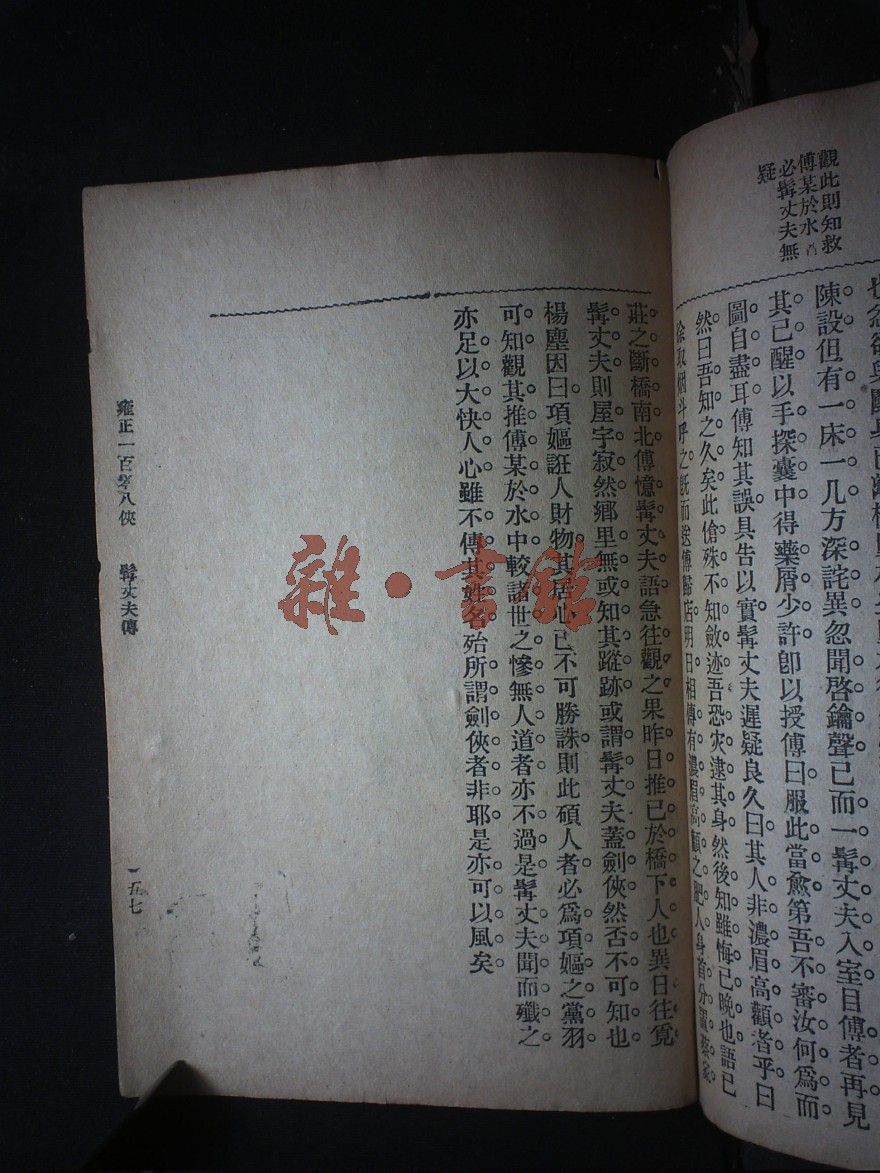 觀此則知救
傅某於水者
必髯丈夫無
疑
陳設但有一床一几方深詫異忽聞啓鑰聲已而一髯丈夫入室目傅者再見
其已醒以手探囊中得藥屑少許卽以授傅曰服此當愈第吾不審汝何爲而
圖自盡耳傅知其誤具告以實髯丈夫遲疑良久曰其人非濃眉高顴者乎曰
然曰吾知之久矣此傖殊不知斂迹吾恐灾逮其身然後知雖悔已晚也語已
徐取烟斗呼之旣而送傅歸店明日相傳有濃眉高顴之肥人身首分置
莊之斷橋南北傅憶髯丈夫語急往觀之果昨日推已於橋下人也異日往覓
髯丈夫則屋宇寂然鄕里無或知其蹤跡或謂髯丈夫蓋劍俠然否不可知也
楊塵因曰項嫗誑人財物其居心已不可勝誅則此碩人者必爲項嫗之黨羽
可知觀其推傅某於水中較諸世之慘無人道者亦不過是髯丈夫聞而殲之
亦足以大快人心雖不傳其姓名殆所謂劍俠者非耶是亦可以風矣
雍正一百零八俠 髯丈夫傳
一五七
雜·書館